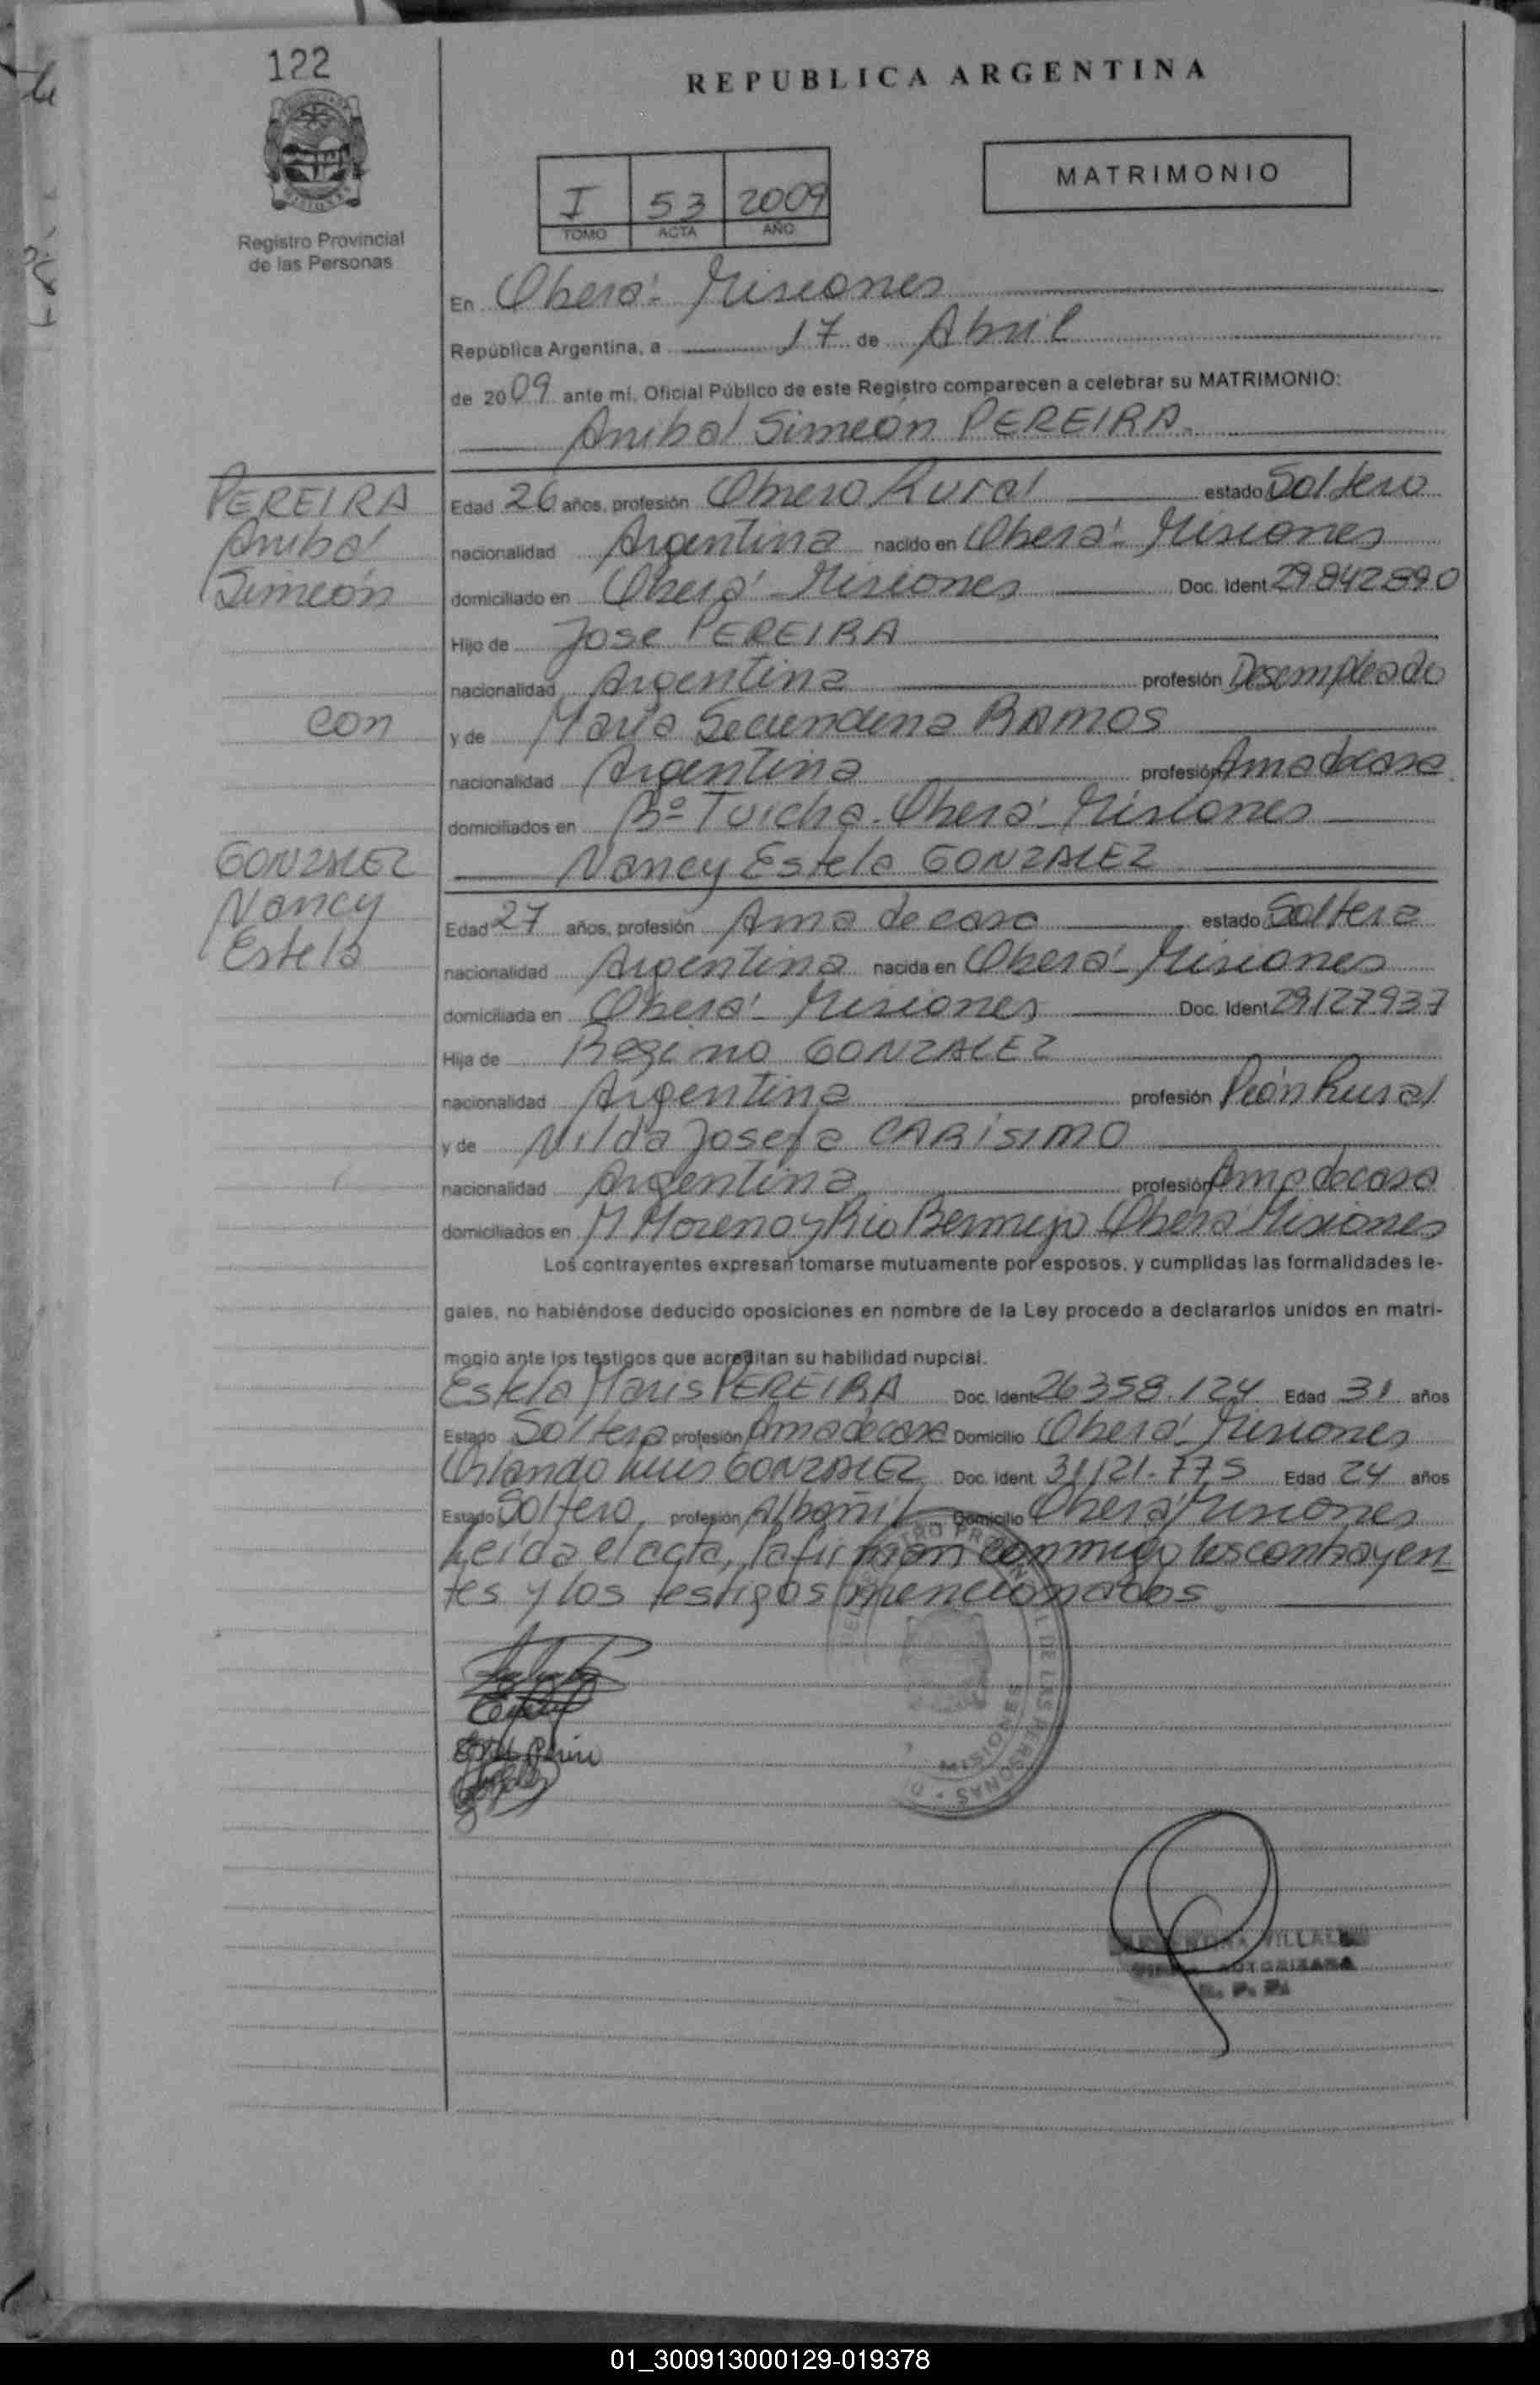 122
REPUBLICA ARGENTINA
MATRIMONIO
I 53 2009
TOMO ACTA AÑO
Registro Provincial
de las Personas
En Oberá - Misiones
República Argentina, a 17 de Abril
de 2009 ante mí, Oficial Público de este Registro comparecen a celebrar su MATRIMONIO:
Anibal Simeón PEREIRA.
PEREIRA
Anibal
Simeón
con
GONZALEZ
Nancy
Estela
Edad 26 años, profesión Obrero Rural estado Soltero
nacionalidad Argentina nacido en Oberá - Misiones
domiciliado en Oberá - Misiones Doc. Ident 29.842.890
Hijo de Jose PEREIRA
nacionalidad Argentina profesión Desempleado
y de Maria Secundina RAMOS
nacionalidad Argentina profesión Ama de casa
domiciliados en Bº Tuicha - Oberá - Misiones
Nancy Estela GONZALEZ
Edad 27 años, profesión Ama de casa estado Soltera
nacionalidad Argentina nacida en Oberá - Misiones
domiciliada en Oberá - Misiones Doc. Ident 29.127.937
Hija de Regino GONZALEZ
nacionalidad Argentina profesión Peón Rural
y de Nilda Josefa CARÍSIMO
nacionalidad Argentina profesión Ama de casa
domiciliados en M Moreno y Rio Bermejo Oberá Misiones
Los contrayentes expresan tomarse mutuamente por esposos, y cumplidas las formalidades le-
gales, no habiéndose deducido oposiciones en nombre de la Ley procedo a declararlos unidos en matri-
monio ante los testigos que acreditan su habilidad nupcial.
Estela Maris PEREIRA Doc. Ident 26.358.124 Edad 31 años
Estado Soltera profesión Ama de casa Domicilio Oberá - Misiones
Orlando Luis GONZALEZ Doc. Ident. 31.121.775 Edad 24 años
Estado Soltero, profesión Albañil Domicilio Oberá Misiones
Leída el acta, la firman conmigo los contrayen
tes y los testigos mencionados.
DE LAS PERSONAS
MISIONES
VILLALBA
AUTORIZADA
01_300913000129-019378